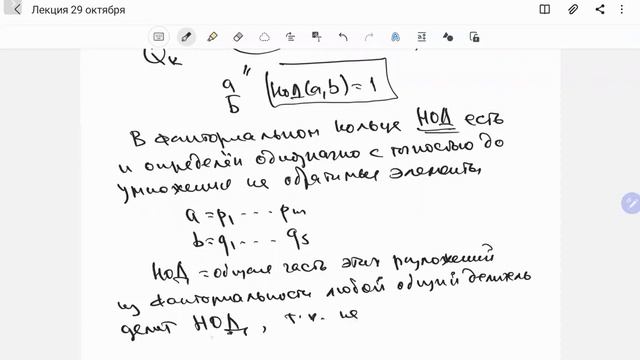 Лекция 29 октября
Q_K
a/b (НОД(a,b)=1
В факториальном кольце НОД есть
и определён однозначно с точностью до
умножения на обратимые элементы
a=p₁ ⋯ pₘ
b=q₁ ⋯ qₛ
НОД = общая часть этих разложений
из факториальности любой общий делитель
делит НОД, т.к. не